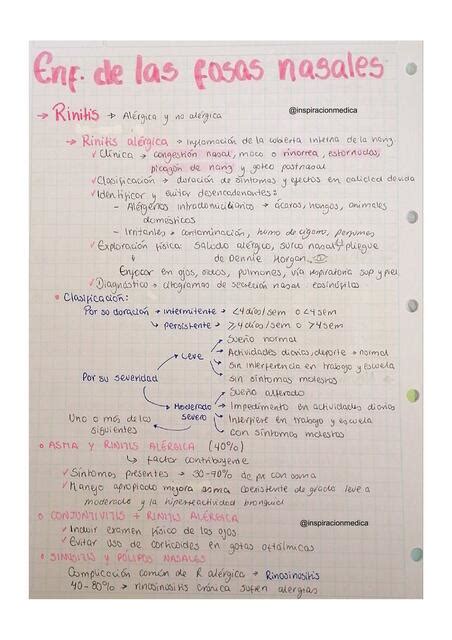 Enf. de las fosas nasales
@inspiracionmedica
→ Rinitis → Alérgica y no alérgica
→ Rinitis alérgica → Inflamación de la cubierta interna de la nariz
✓ Clínica → congestión nasal, moco o rinorrea, estornudos,
picazón de nariz y goteo postnasal
✓ Clasificación → duración de síntomas y efectos en calidad de vida
✓ Identificar y evitar desencadenantes:
- Alérgenos intradomiciliarios → ácaros, hongos, animales
domésticos
- Irritantes → contaminación, humo de cigarro, perfumes
✓ Exploración física: Saludo alérgico, surco nasal, pliegue
de Dennie Morgan.
Enfocar en ojos, oídos, pulmones, vía respiratoria sup y piel
✓ Diagnóstico → citogramas de secreción nasal eosinófilos
• Clasificación:
Por su duración → intermitente → <4 días/sem o <4 sem
↳ persistente → ≥4 días/sem o >4 sem
Por su severidad
Leve
Sueño normal
Actividades diarias, deporte → normal
Sin interferencia en trabajo y escuela
Sin síntomas molestos
Moderado severo
Uno o más de los siguientes
Sueño alterado
Impedimento en actividades diarias
Interfiere en trabajo y escuela
Con síntomas molestos
• ASMA Y RINITIS ALÉRGICA (40%)
↳ Factor contribuyente
✓ Síntomas presentes → 30-90% de px con asma
✓ Manejo apropiado mejora asma coexistente de grado leve a
moderado y la hiperreactividad bronquial
• CONJUNTIVITIS + RINITIS ALÉRGICA
@inspiracionmedica
✓ Incluir examen físico de los ojos
✓ Evitar uso de corticoides en gotas oftálmicas
• SINUSITIS Y PÓLIPOS NASALES
Complicación común de R alérgica → Rinosinusitis
40-80% → rinosinusitis crónica sufren alergias